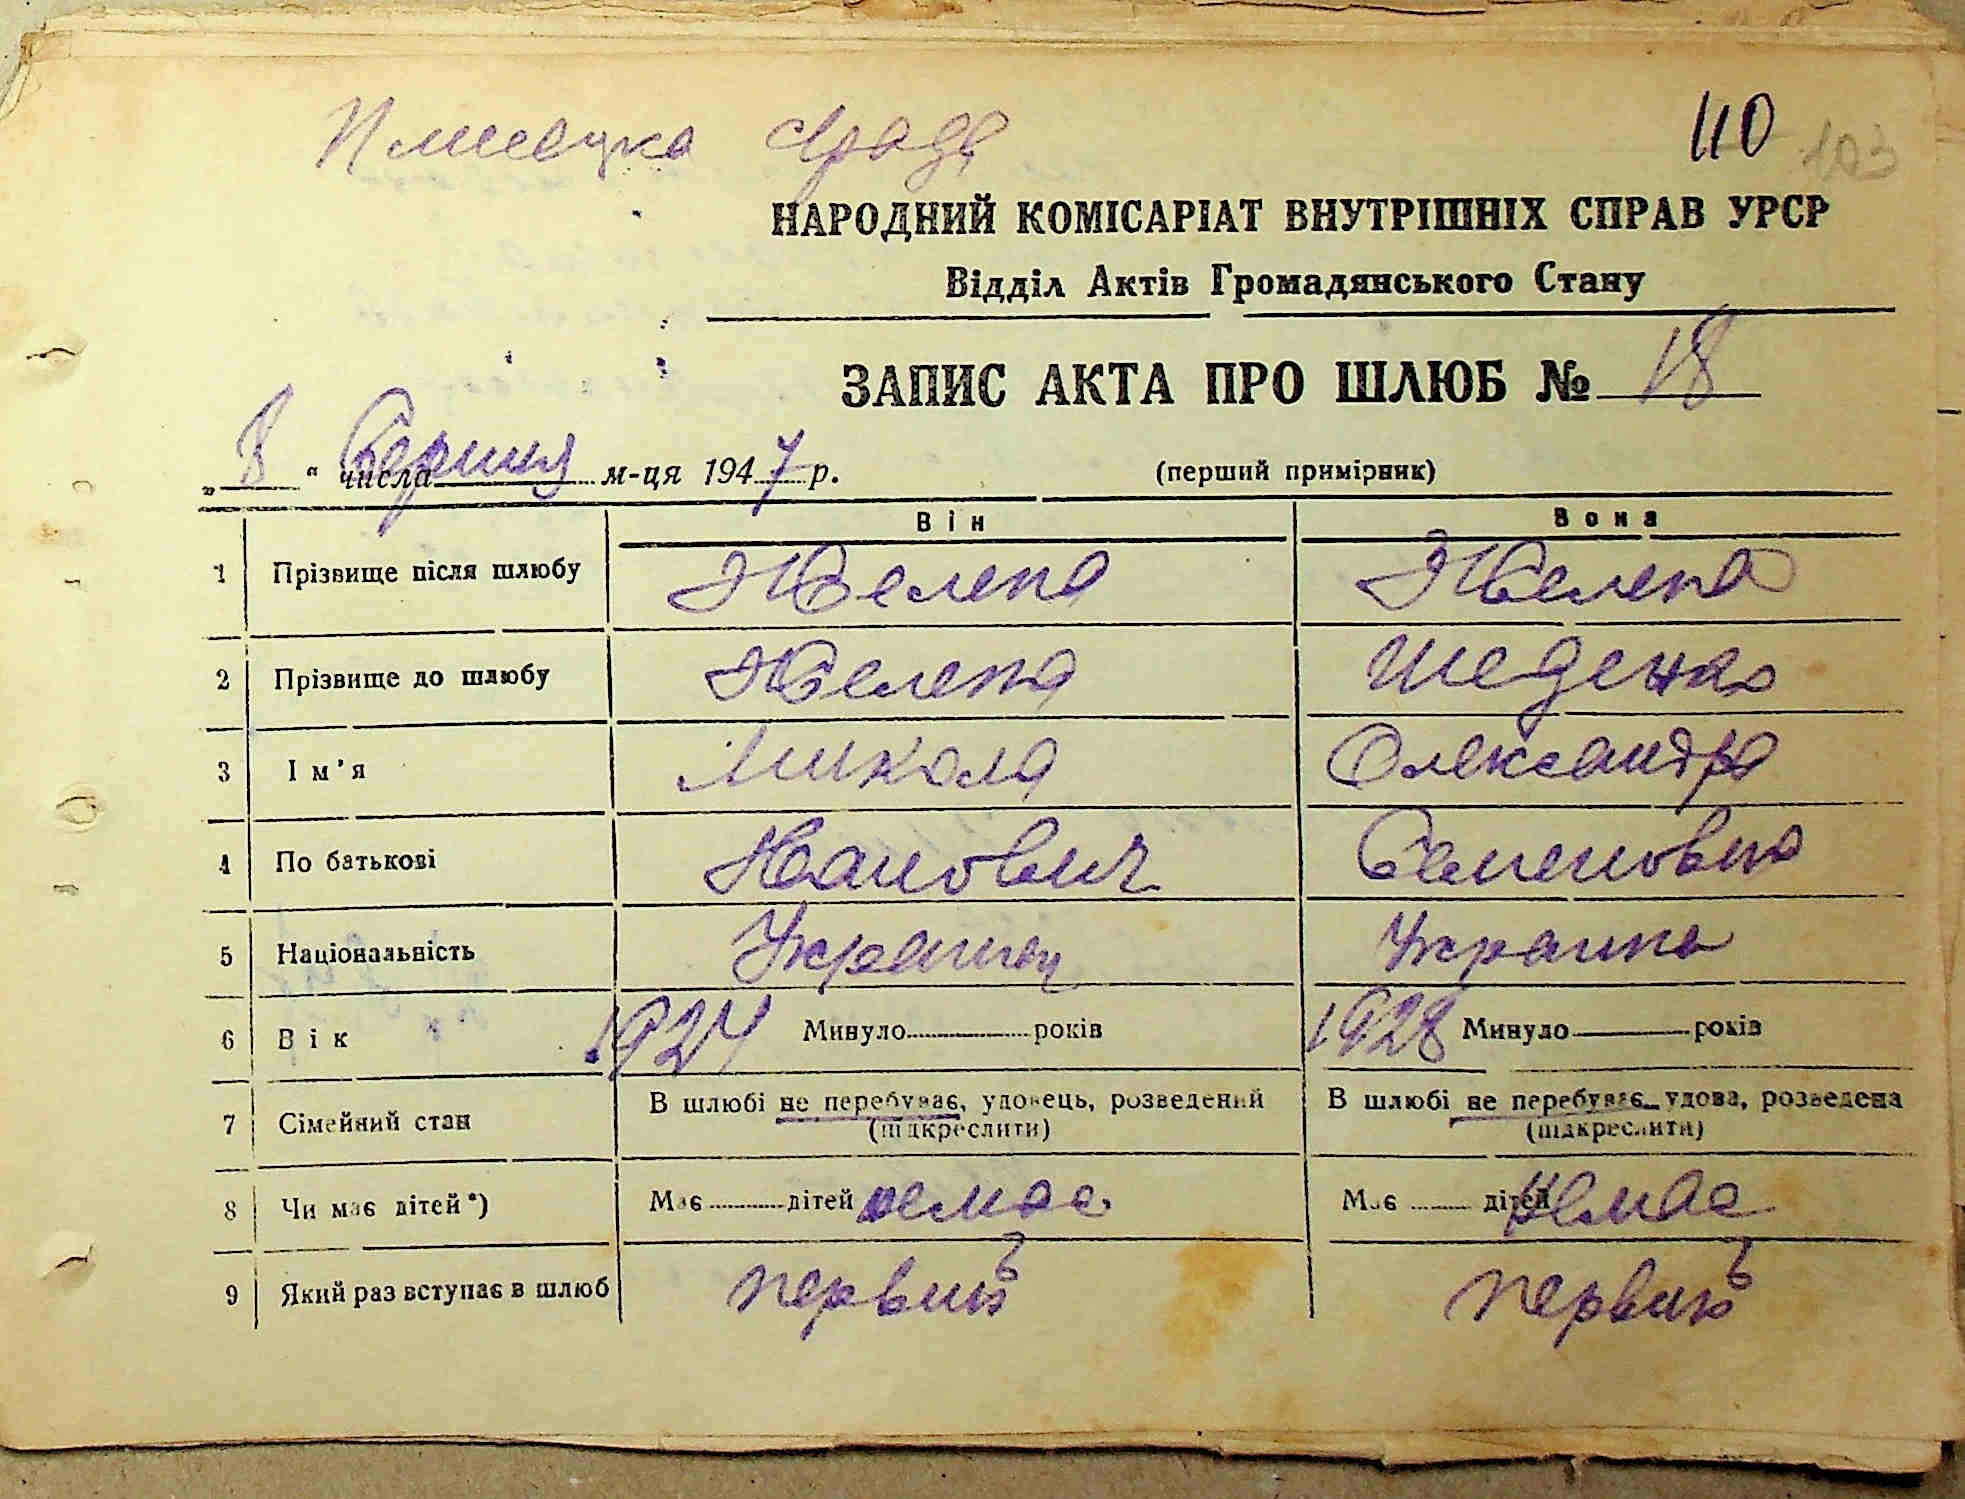 110 103
НАРОДНИЙ КОМІСАРІАТ ВНУТРІШНІХ СПРАВ УРСР
Відділ Актів Громадянського Стану
ЗАПИС АКТА ПРО ШЛЮБ № 18
„ 8 “ числа Серпня м-ця 1947 р. (перший примірник)
Він Вона
1 Прізвище після шлюбу Желепа Желепа
2 Прізвище до шлюбу Желепа
3 Ім'я Микола Олександра
4 По батькові Іванович Семеновна
5 Національність Украинец Украинка
6 Вік 1924 Минуло років 1928 Минуло років
7 Сімейний стан В шлюбі не перебуває, удовець, розведений (підкреслити) В шлюбі не перебуває, удова, розведена (підкреслити)
8 Чи має дітей*) Має дітей немає Має дітей немає
9 Який раз вступає в шлюб первий первий